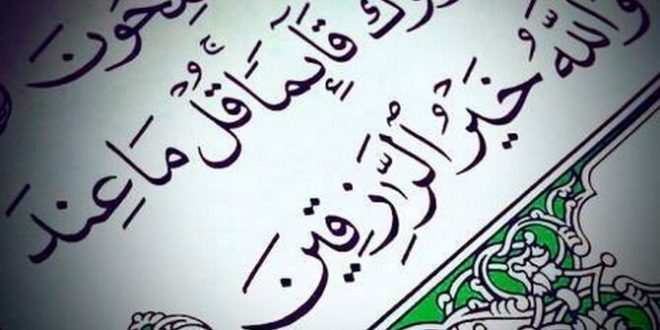 قَآئِمًا قُلْ مَا عِندَ
وَاللَّهُ خَيْرُ الرَّٰزِقِينَ